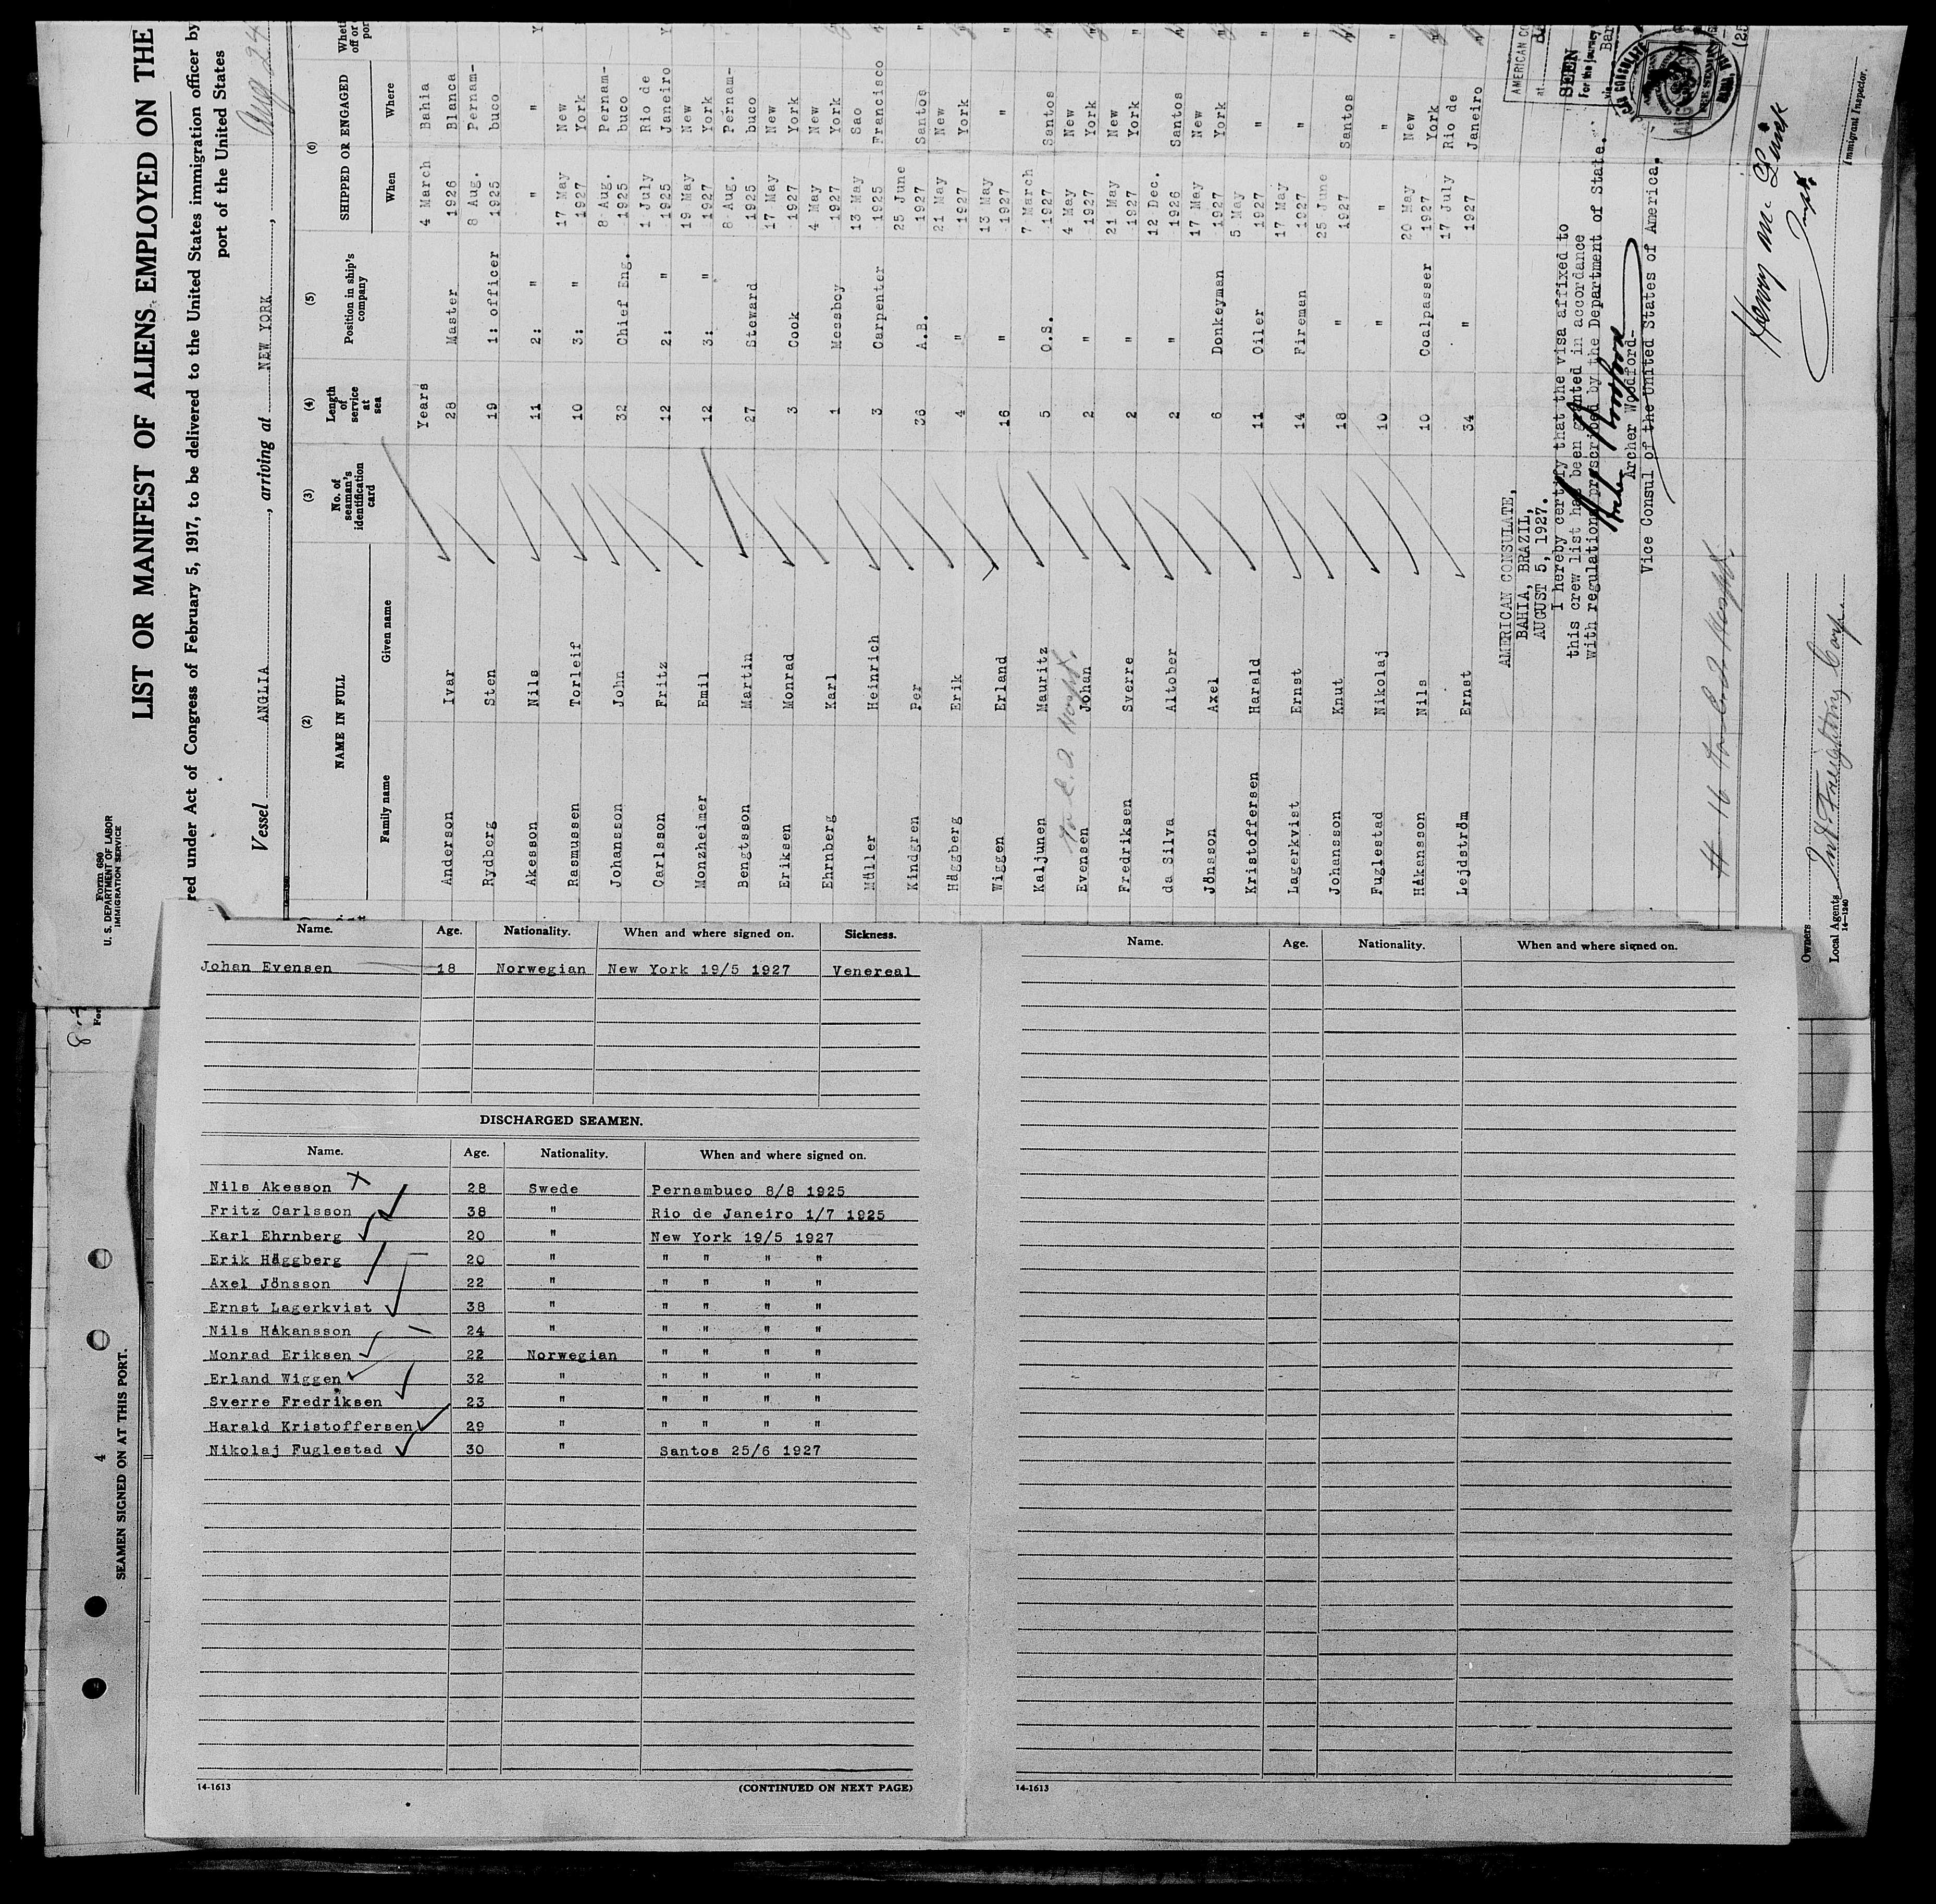 Form 680
U. S. DEPARTMENT OF LABOR
IMMIGRATION SERVICE
LIST OR MANIFEST OF ALIENS EMPLOYED ON THE
red under Act of Congress of February 5, 1917, to be delivered to the United States immigration officer by
port of the United States
Vessel ANGLIA, arriving at NEW YORK, Aug 24
(2) (3) (4) (5) (6)
NAME IN FULL No. of seaman's identification card Length of service at sea Position in ship's company SHIPPED OR ENGAGED
Family name Given name When Where
Years
Anderson Ivar 28 Master 4 March 1926 Bahia Blanca
Rydberg Sten 19 1: officer 8 Aug. 1925 Pernambuco
Akesson Nils 11 2: " " "
Rasmussen Torleif 10 3: " 17 May 1927 New York
Johansson John 32 Chief Eng. 8 Aug. 1925 Pernambuco
Carlsson Fritz 12 2: " 1 July 1925 Rio de Janeiro
Monzheimer Emil 12 3: " 19 May 1927 New York
Bengtsson Martin 27 Steward 8 Aug. 1925 Pernambuco
Eriksen Monrad 3 Cook 17 May 1927 New York
Ehrnberg Karl 1 Messboy 4 May 1927 New York
Müller Heinrich 3 Carpenter 13 May 1925 Sao Francisco
Kindgren Per 36 A.B. 25 June 1927 Santos
Häggberg Erik 4 " 21 May 1927 New York
Wiggen Erland 16 " 13 May 1927 "
Kaljunen Mauritz 5 O.S. 7 March 1927 Santos
Evensen Johan 2 " 4 May 1927 New York
Fredriksen Sverre 2 " 21 May 1927 New York
da Silva Altober 2 " 12 Dec. 1926 Santos
Jönsson Axel 6 Donkeyman 17 May 1927 New York
Kristoffersen Harald 11 Oiler 5 May 1927 "
Lagerkvist Ernst 14 Fireman 17 May 1927 "
Johansson Knut 18 " 25 June 1927 Santos
Fuglestad Nikolaj 10 " " "
Håkansson Nils 10 Coalpasser 20 May 1927 New York
Lejdström Ernst 34 " 17 July 1927 Rio de Janeiro
AMERICAN CONSULATE,
BAHIA, BRAZIL,
AUGUST 5, 1927.
I hereby certify that the visa affixed to
this crew list has been granted in accordance
with regulations prescribed by the Department of State.
Archer Woodford
Archer Woodford-
Vice Consul of the United States of America.
AMERICAN CO
at
SEEN
For the journey
via
Henry M.
Immigrant Inspector.
Owners
Local Agents Int Freighting Corp.
14-1240
Name. Age. Nationality. When and where signed on. Sickness.
Johan Evensen 18 Norwegian New York 19/5 1927 Venereal
DISCHARGED SEAMEN.
Name. Age. Nationality. When and where signed on.
Nils Akesson 28 Swede Pernambuco 8/8 1925
Fritz Carlsson 38 " Rio de Janeiro 1/7 1925
Karl Ehrnberg 20 " New York 19/5 1927
Erik Häggberg 20 " " " " "
Axel Jönsson 22 " " " " "
Ernst Lagerkvist 38 " " " " "
Nils Håkansson 24 " " " " "
Monrad Eriksen 22 Norwegian " " " "
Erland Wiggen 32 " " " " "
Sverre Fredriksen 23 " " " " "
Harald Kristoffersen 29 " " " " "
Nikolaj Fuglestad 30 " Santos 25/6 1927
14-1613 (CONTINUED ON NEXT PAGE)
Name. Age. Nationality. When and where signed on.
14-1613
4
SEAMEN SIGNED ON AT THIS PORT.